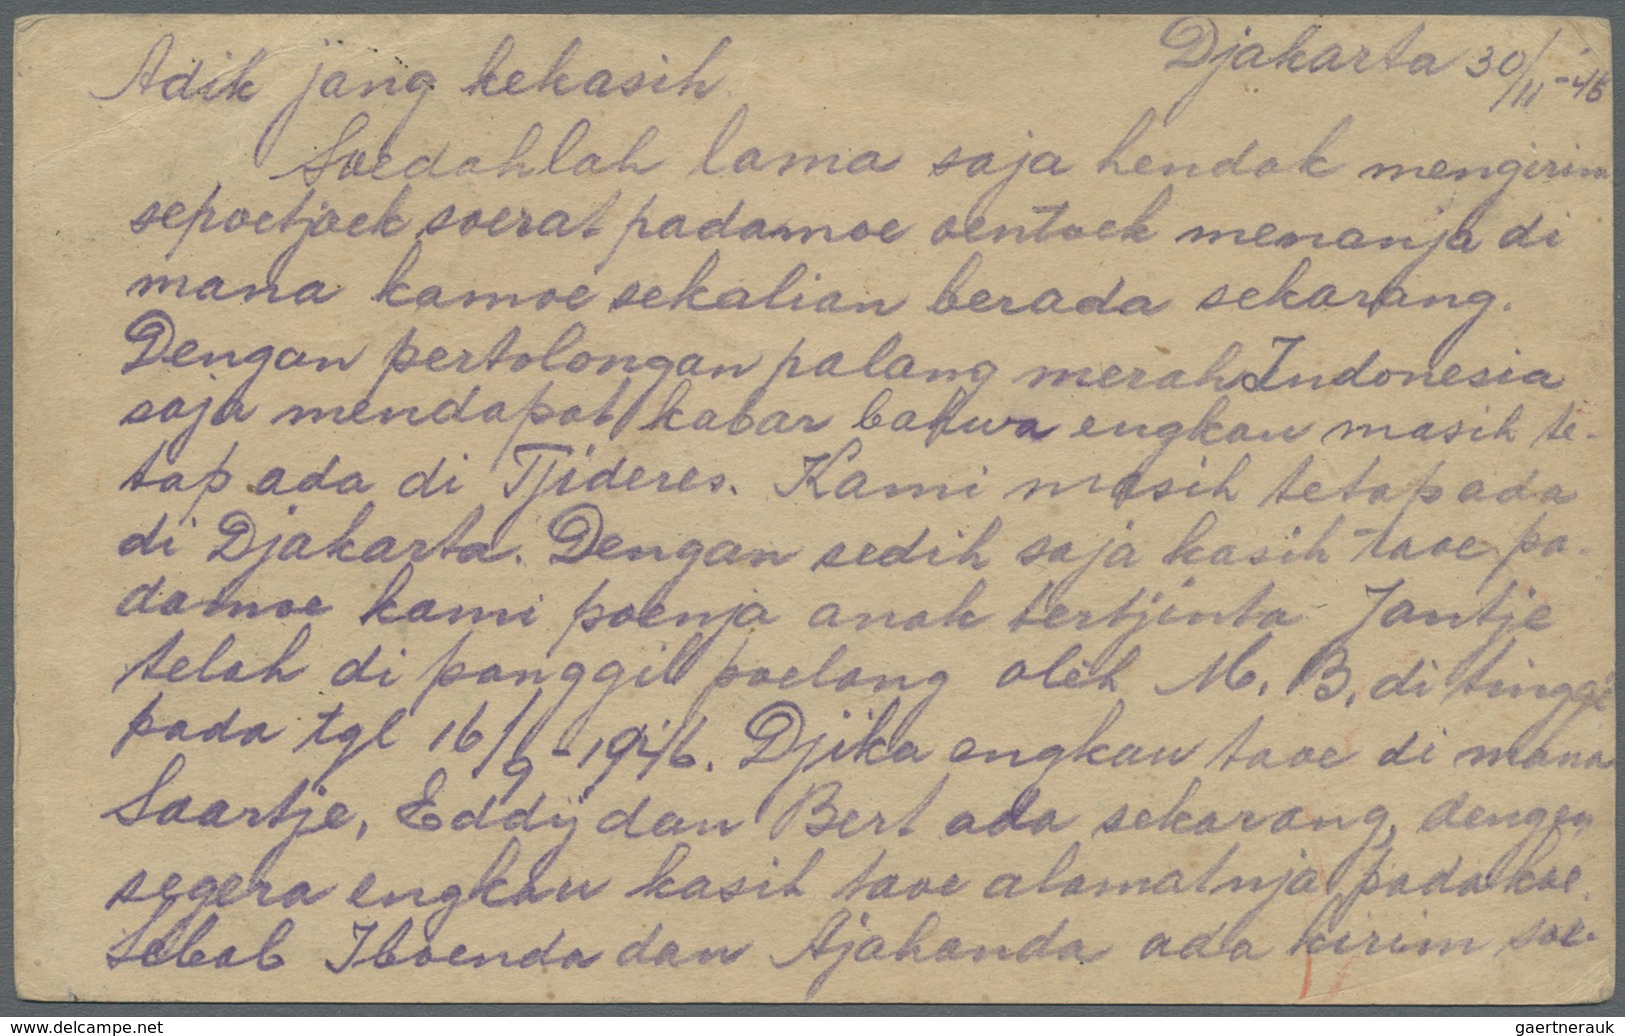 Djakarta 30/11-'46
Adik jang kekasih.
Soedahlah lama saja hendak mengirim
sepoetjoek soerat padamoe oentoek menanja di
mana kamoe sekalian berada sekarang.
Dengan pertolongan palang merah Indonesia
saja mendapat kabar bahwa engkau masih te-
tap ada di Tjideres. Kami masih tetap ada
di Djakarta. Dengan sedih saja kasih taoe pa-
damoe kami poenja anak tertjinta Jantje
telah di panggil poelang oleh M. B. di tinggi
pada tgl 16/9-1946. Djika engkau taoe di mana
Saartje, Eddy dan Bert ada sekarang, dengan
segera engkau kasih taoe alamatnja padakoe.
Sebab Iboenda dan Ajahanda ada kirim soe-
www.delcampe.net
gaertnerauk